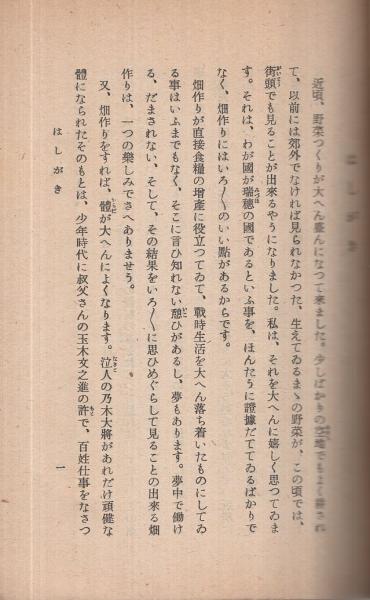 近頃、野菜つくりが大へん盛んになつて来ました。少しばかりの空地でもよく耕され
て、以前には郊外でなければ見られなかつた、生えてゐるまゝの野菜が、この頃では、
街頭でも見ることが出來るやうになりました。私は、それを大へんに嬉しく思つてゐま
す。それは、わが國が瑞穂の國であるといふ事を、ほんたうに證據だてゝゐるばかりで
なく、畑作りにはいろ〳〵のいい點があるからです。
畑作りが直接食糧の增產に役立つてゐて、戰時生活を大へん落ち着いたものにしてゐ
る事はいふまでもなく、そこに言ひ知れない憩ひがあるし、夢もあります。夢中で働け
る、だまされない、そして、その結果をいろ〳〵に思ひめぐらして見ることの出來る畑
作りは、一つの樂しみでさへありませう。
又、畑作りをすれば、體が大へんによくなります。泣人の乃木大將があれだけ頑健な
體になられたそのもとは、少年時代に叔父さんの玉木文之進の許で、百姓仕事をなさつ
はしがき
一